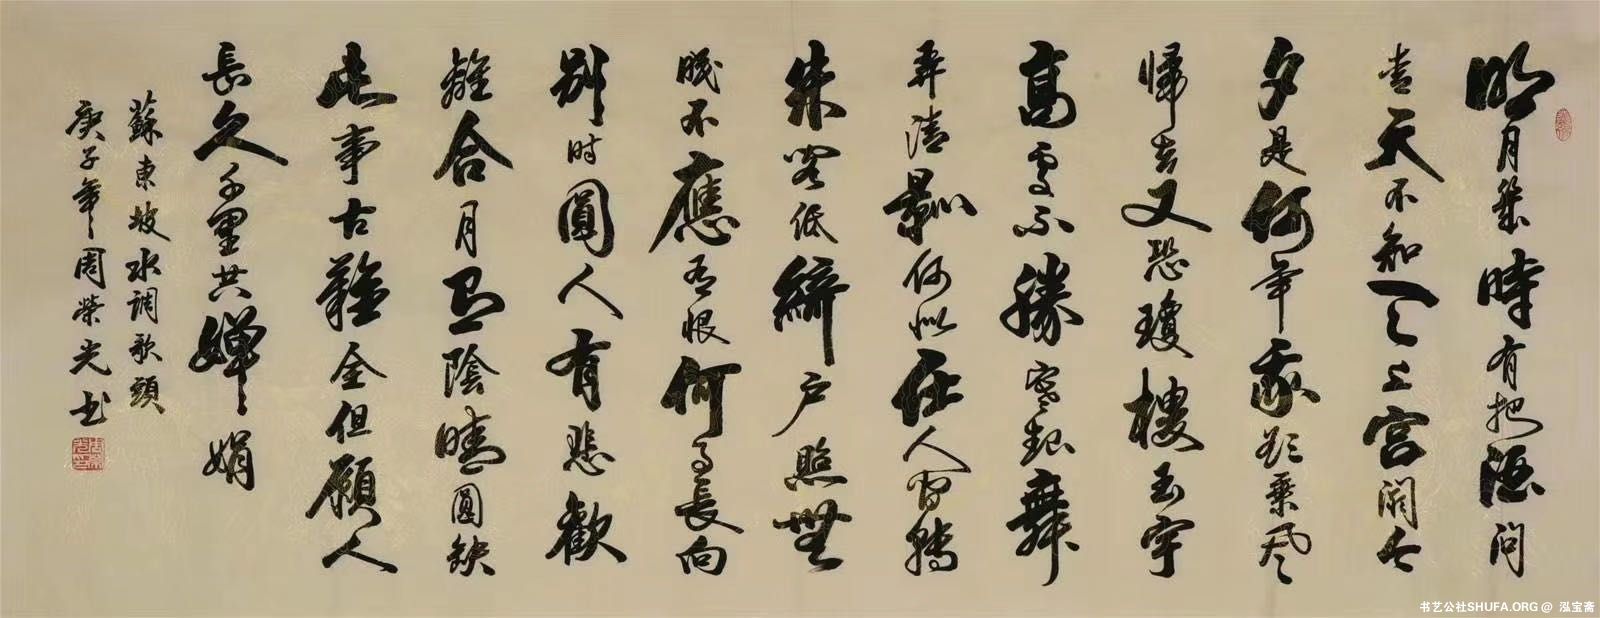 明月幾時有把酒問
青天不知天上宮闕今
夕是何年我欲乘風
歸去又恐瓊樓玉宇
高處不勝寒起舞
弄清影何似在人間轉
朱閣低綺戶照無
眠不應有恨何事長向
別時圓人有悲歡
離合月有陰晴圓缺
此事古難全但願人
長久千里共嬋娟
蘇東坡水調歌頭
庚子年周榮光书
书艺公社SHUFA.ORG @ 泓宝斋